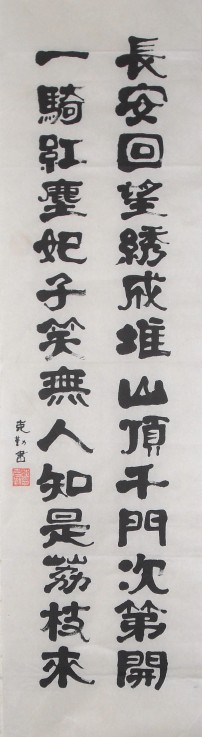 長安回望綉成堆山頂千門次第開
一騎紅塵妃子笑無人知是荔枝來
克勤書